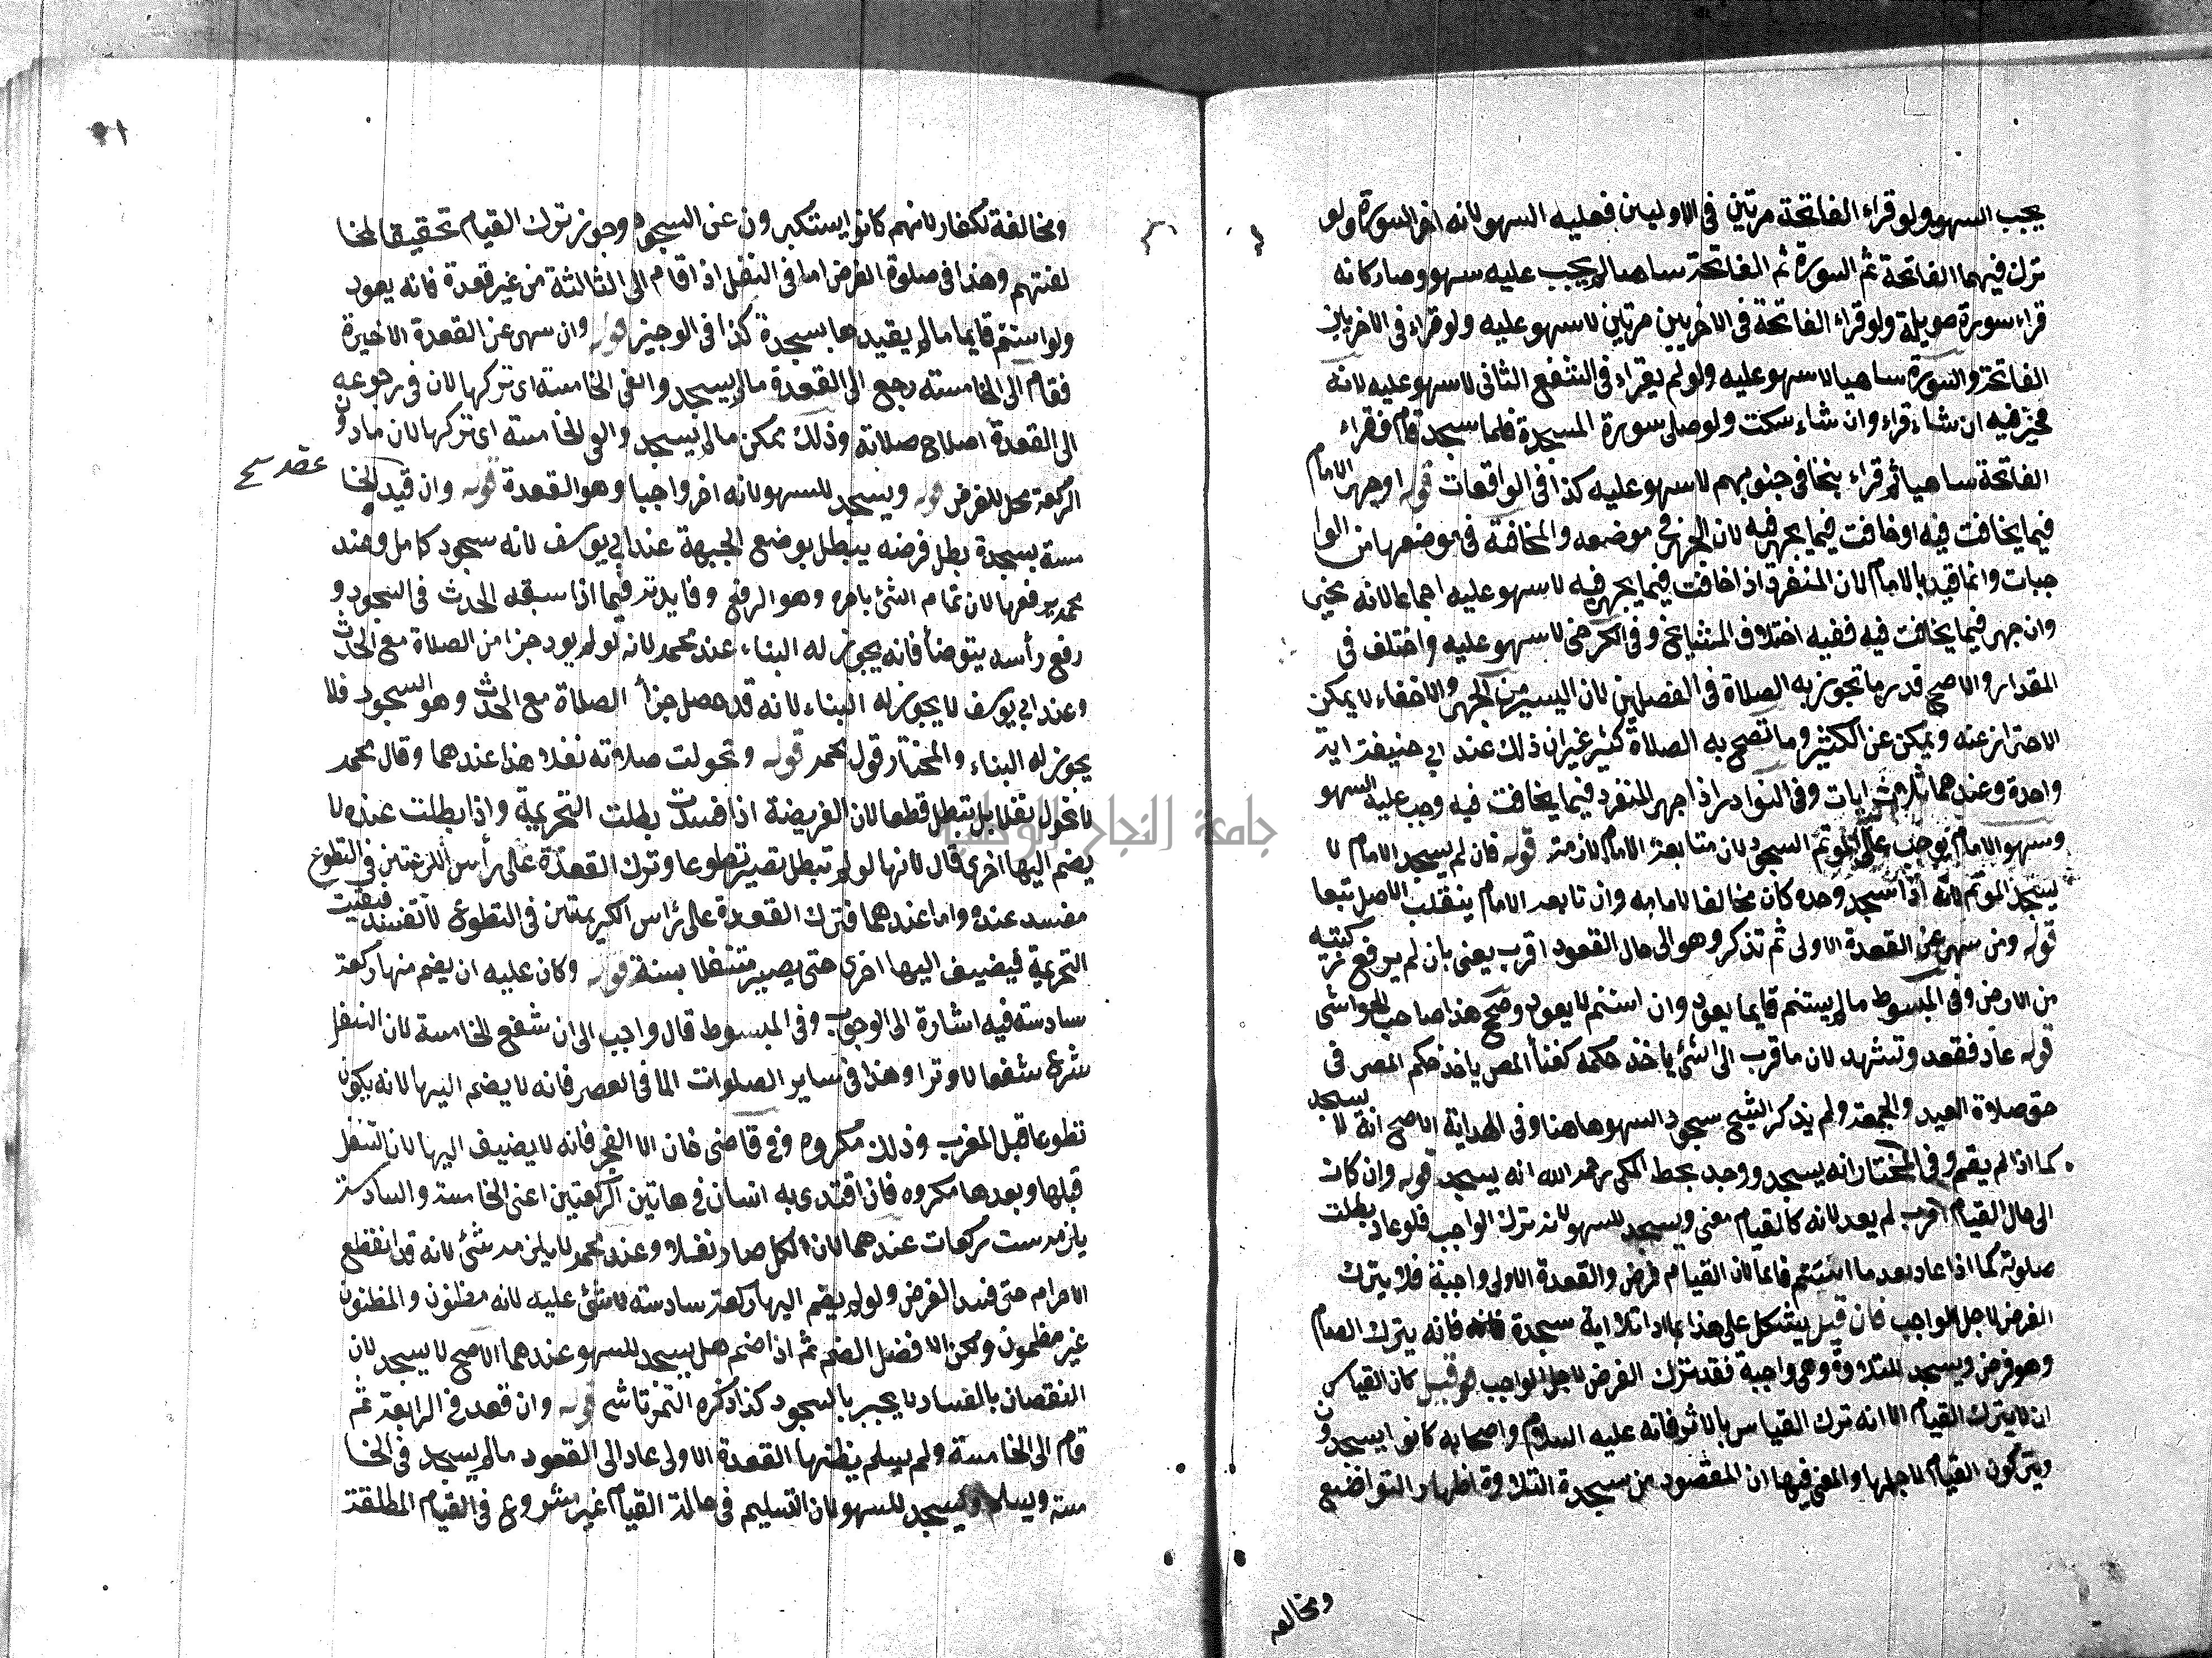 يجب السهو ولو قراء الفاتحة مرتين في الاوليين فعليه السهو لانه اخر السورة ولو
ترك فيهما الفاتحة ثم السورة ثم الفاتحة ساهيا لا يجب عليه سهو وصار كانه
قراء سورة طويلة ولو قراء الفاتحة في الاخريين مرتين لا سهو عليه ولو قراء في الاخريين
الفاتحة والسورة ساهيا لا سهو عليه ولو لم يقراء في الشفع الثاني لا سهو عليه لانه
مخير فيه ان شاء قراء وان شاء سكت ولو صلى سورة السجدة فلما سجد قام فقراء
الفاتحة ساهيا ثم قراء تتجافى جنوبهم لا سهو عليه كذا في الواقعات قوله او جهر الامام
فيما يخافت فيه او خافت فيما يجهر فيه لان الجهر في موضعه والمخافتة في موضعها من الوا
جبات وانما قيد بالامام لان المنفرد اذا خافت فيما يجهر فيه لا سهو عليه اجماعا لانه مخير
وان جهر فيما يخافت فيه ففيه اختلاف المشايخ وفي الكرخي لا سهو عليه واختلف في
المقدار والاصح قدر ما تجوز به الصلاة في الفصلين لان اليسير من الجهر والاخفاء لا يمكن
الاحتراز عنه ويمكن عن الكثير وما تصح به الصلاة كثير غير ان ذلك عند ابي حنيفة اية
واحدة وعندهما ثلاث ايات وفي النوادر اذا جهر المنفرد فيما يخافت فيه وجب عليه السهو
وسهو الامام يوجب على المؤتم السجود لان متابعة الامام لازمة قوله فان لم يسجد الامام لا
يسجد المؤتم لانه اذا سجد وحده كان مخالفا لامامه وان تابعه الامام ينقلب الاصل تبعا
قوله ومن سهى عن القعدة الاولى ثم تذكر وهو الى حال القعود اقرب يعني بان لم يرفع ركبتيه
من الارض وفي المبسوط ما لم يستتم قايما يعود وان استتم لا يعود وصحح هذا صاحب الحواشي
قوله عاد فقعد وتشهد لان ما قرب الى الشئ ياخذ حكمه كفناء المصر ياخذ حكم المصر في
حق صلاة العيد والجمعة ولم يذكر الشيخ سجود السهو هاهنا وفي الهداية الاصح انه لا يسجد
كما اذا لم يقم وفي المختار انه يسجد ووجد بخط المكي رحمه الله انه يسجد قوله وان كان
الى حال القيام اقرب لم يعد لانه كالقيام معنى ويسجد للسهو لانه ترك الواجب فلو عاد بطلت
صلوته كما اذا عاد بعد ما استتم قائما لان القيام فرض والقعدة الاولى واجبة فلا يترك
الفرض لاجل الواجب فان قيل يشكل على هذا بما اذا تلا اية سجدة فانه فانه يترك القيام
وهو فرض ويسجد للتلاوة وهي واجبة فقد ترك الفرض لاجل الواجب قيل كان القياس
ان لا يترك القيام الا انه ترك القياس بالاثر فانه عليه السلام واصحابه كانوا يسجدون
ويتركون القيام لاجلها والمعنى فيها ان المقصود من سجدة التلاوة اظهار التواضع
ومخالفه
ومخالفة لكفار لانهم كانوا يستكبرون عن السجود وجوز ترك القيام تحقيقا لمخا
لفتهم وهذا في صلوة الفرض اما في النفل اذا قام الى الثالثة من غير قعدة فانه يعود
ولو استتم قايما ما لم يقيدها بسجدة كذا في الوجيز قوله وان سهى عن القعدة الاخيرة
فقام الى الخامسة رجع الى القعدة ما لم يسجد والغى الخامسة اي تركها لان في رجوعه
الى القعدة اصلاح صلاته وذلك ممكن ما لم يسجد والغى الخامسة اي تركها لان ما دون
الركعة محل للفرض قوله ويسجد للسهو لانه اخر واجبا وهو القعدة قوله وان قيد الخا
مسة بسجدة بطل فرضه يبطل بوضع الجبهة عند ابي يوسف لانه سجود كامل وعند
محمد برفعها لان تمام الشئ باخره وهو الرفع وفايدته فيما اذا سبقه الحدث في السجود و
رفع رأسه يتوضأ فانه يجوز له البناء عند محمد لانه لو لم يود جزا من الصلاة مع الحدث
وعند ابي يوسف لا يجوز له البناء لانه قد حصل جزأ الصلاة مع الحدث وهو السجود فلا
يجوز له البناء والمختار قول محمد قوله وتحولت صلاته نفلا هذا عندهما وقال محمد
لا تحول نفلا بل تبطل قطعا لان الفريضة اذا فسدت بطلت التحريمة واذا بطلت عنده لا
يضم اليها اخرى قال لانها لو لم تبطل تصير تطوعا وترك القعدة على رأس الركعتين في التطوع
مفسد عنده واما عندهما فترك القعدة على رأس الركعتين في التطوع لا تفسد فبقيت
التحريمة فيضيف اليها اخرى حتى يصير متنفلا بستة قوله وكان عليه ان يضم منها ركعة
سادسة فيه اشارة الى الوجوب وفي المبسوط قال واجب الى ان شفع الخامسة لان النفل
شرع شفعا لا وترا وهذا في ساير الصلوات الما في العصر فانه لا يضم اليها لانه يكون
تطوعا قبل المغرب وذلك مكروه وفي قاضى خان الا الفجر فانه لا يضيف اليها لان التنفل
قبلها وبعدها مكروه فان اقتدى به انسان في هاتين الركعتين اعنى الخامسة والسادسة
يلزمه ست ركعات عندهما لان الكل صار نفلا وعند محمد لا يلزمه شئ لانه قد انقطع
الاحرام حتى فسد الفرض ولو لم يضم اليها ركعة سادسة لا شئ عليه لانه مظنون والمظنون
غير مضمون ولكن الافضل الضم ثم اذا ضم هل يسجد للسهو عندهما الاصح لا يسجد لان
النقصان بالفساد لا يجبر بالسجود كذا ذكره التمرتاشي قوله وان قعد في الرابعة ثم
قام الى الخامسة ولم يسلم يظنها القعدة الاولى عاد الى القعود ما لم يسجد في الخا
مسة ويسلم ويسجد للسهو لان التسليم في حالة القيام غير مشروع في القيام المطلقة
جامعة النجاح الوطنية